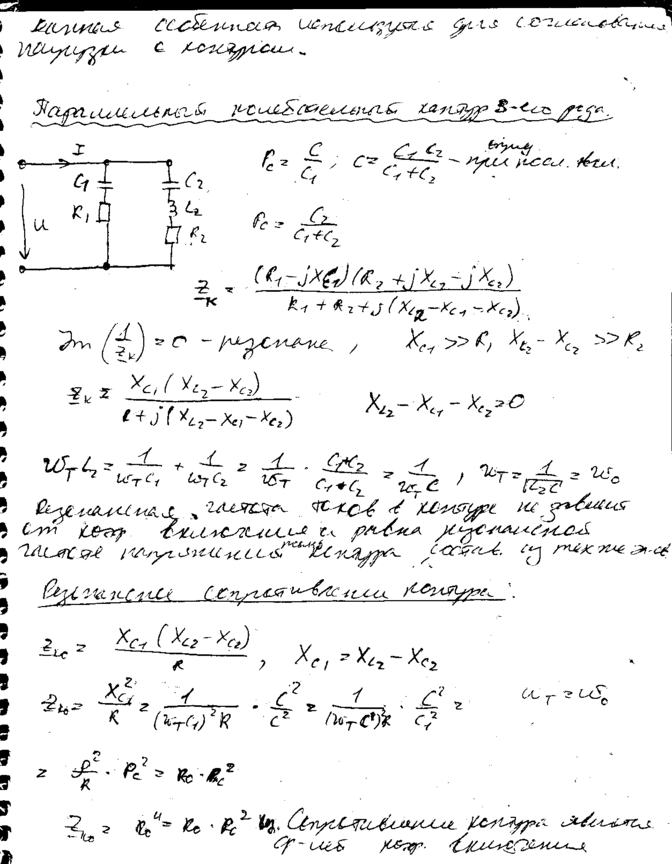 данная особенность используется для согласования
нагрузки с контуром.
Параллельный колебательный контур 3-его рода.
I
C1 C2
R1 L2
u R2
Pc = C/C1 ; C = C1 C2/(C1+C2) – при посл. вкл.
Pc = C2/(C1+C2)
Zк = (R1-jXC1)(R2+jXL2-jXC2)/(R1+R2+j(XL2-XC1-XC2))
Jm(1/Zк)=0 - резонанс, XC1>>R1 XL2-XC2>>R2
Zк = XC1(XL2-XC2)/(R+j(XL2-XC1-XC2)) XL2-XC1-XC2=0
ωT L2 = 1/(ωT C1) + 1/(ωT C2) = 1/ωT · (C1+C2)/(C1+C2) = 1/(ωT C) , ωT = 1/√(L2C) = ω0
Резонансная частота токов в контуре не зависит
от коэф. включения и равна резонансной
частоте напряжения контура, состав. из тех же эл-в
Резонансное сопротивление контура:
Zко = XC1(XL2-XC2)/R , XC1 = XL2-XC2
Zко = XC1²/R = 1/((ωT C1)²R) · C²/C² = 1/((ωT C)²R) · C²/C1² = ωT=ω0
= ρ²/R · Pc² = R0 · Pc²
Zко = R0ч = R0 · Pc² Сопротивление контура является
ф-ией коэф. включения